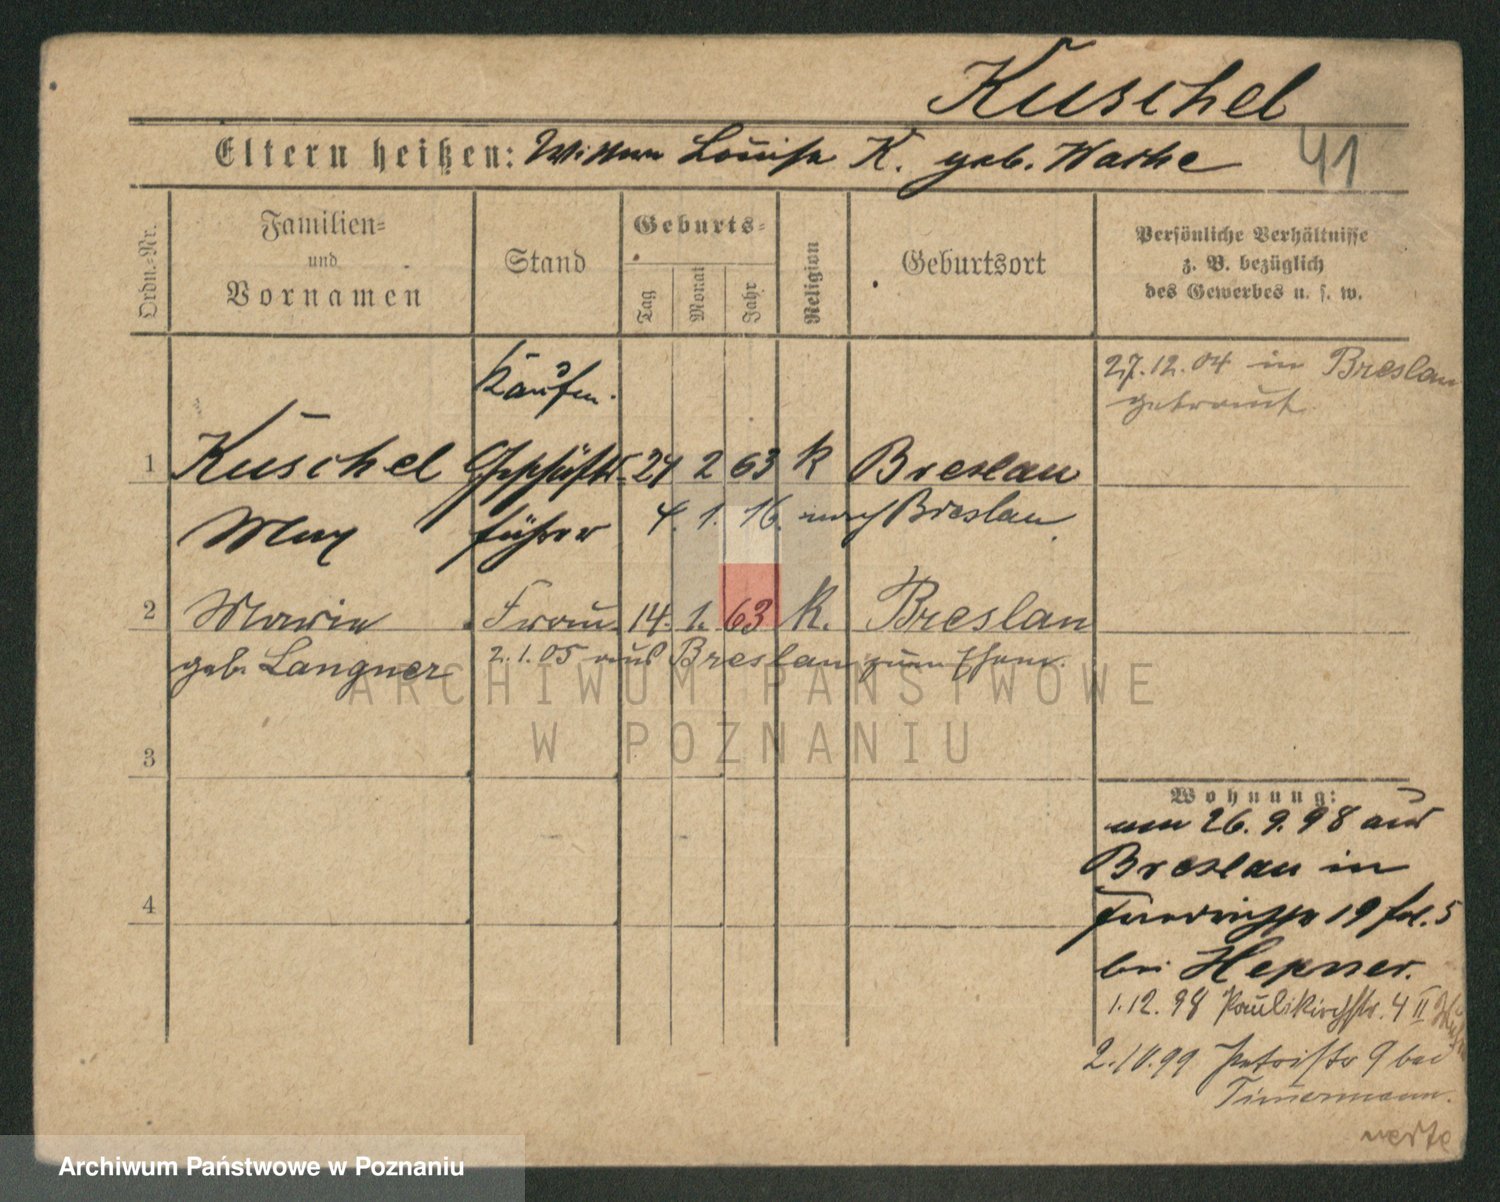 Kuschel
Eltern heißen: Wittwe Louise K. geb. Waske
41
Ordn.-Nr.
Familien-
und
Vornamen
Stand
Geburts-
Tag
Monat
Jahr
Religion
Geburtsort
Persönliche Verhältnisse
z. B. bezüglich
des Gewerbes u. s. w.
Kaufm.
27.12.04 in Breslau
getraut
1 Kuschel Geschäfts- 24 2 63 K Breslau
Max führer 4. 1. 16. nach Breslau
2 Marie Frau 14. 1. 63 K. Breslau
geb. Langner 2.1.05 aus Breslau zum Ehem.
3
4
Wohnung:
am 26.9.98 aus
Breslau in
19 5
bei Hepner.
1.12.98 Paulikirchstr. 4 II
2.10.99 Petristr 9 bei
Timmermann.
verte
ARCHIWUM PAŃSTWOWE
W POZNANIU
Archiwum Państwowe w Poznaniu